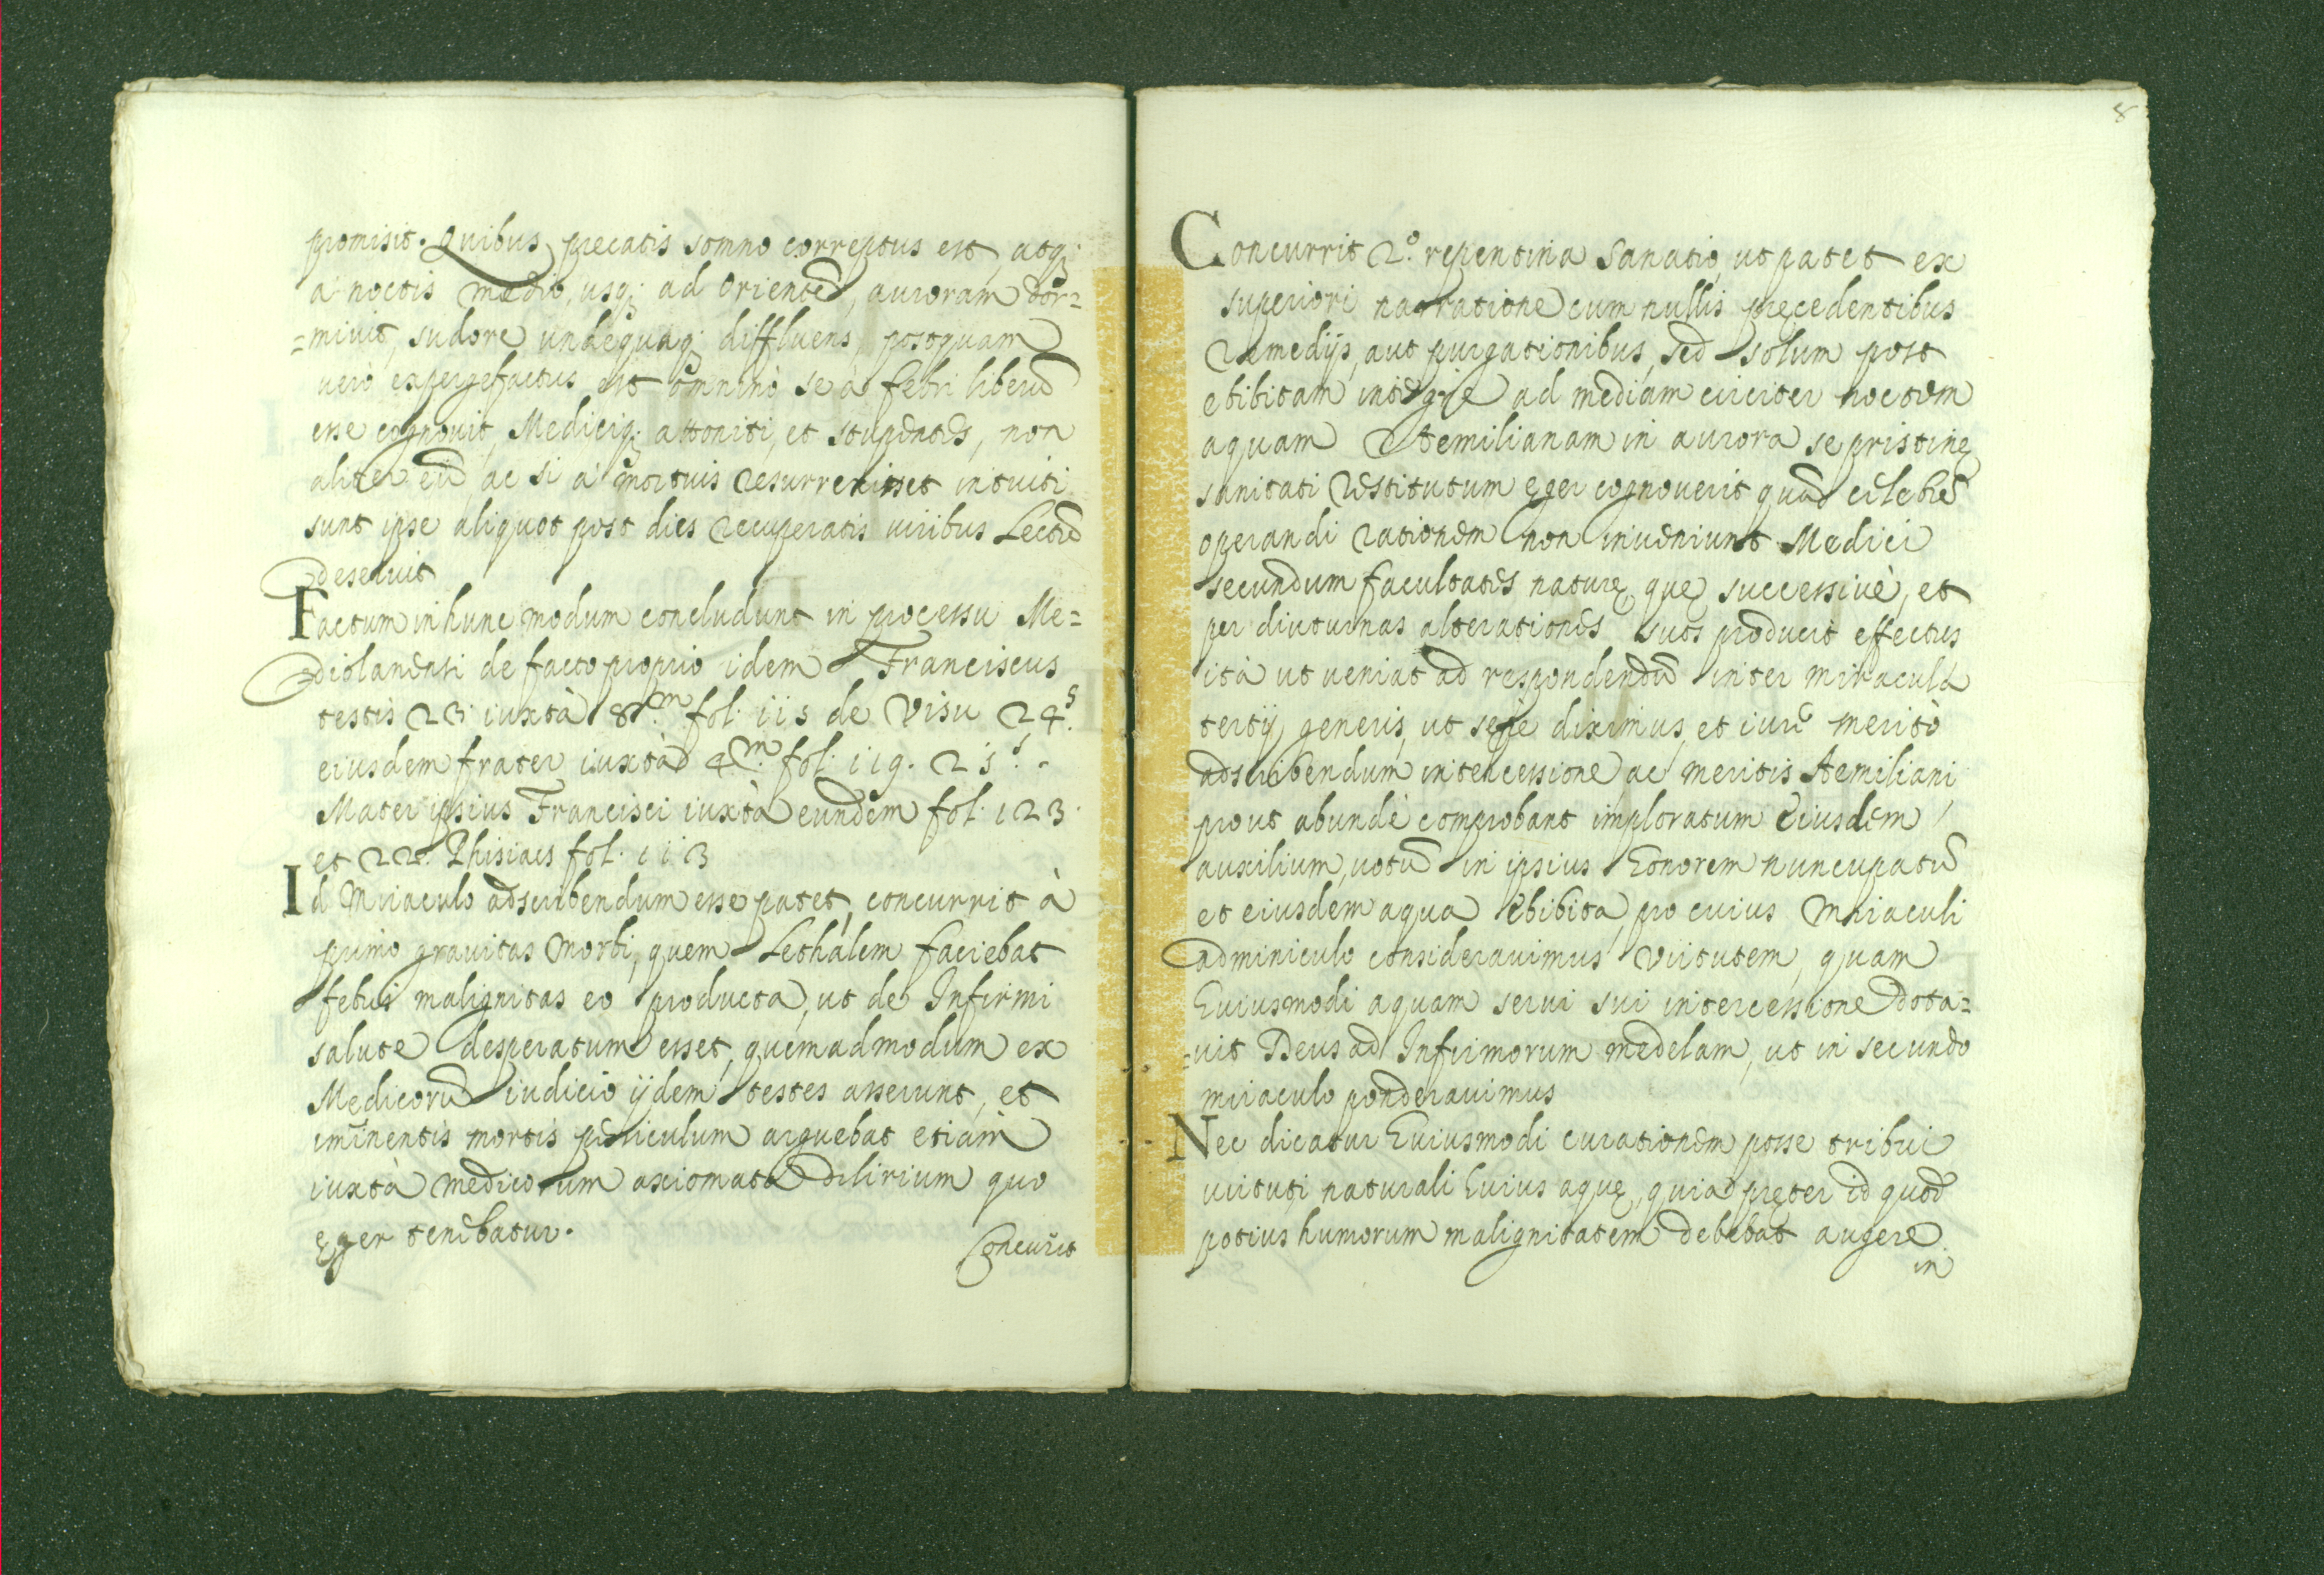 promisit. Quibus precatis somno correptus est, atq;
à noctis medio, usq; ad Orientē, auroram dor=
=mivit, sudore undequaq; diffluens, postquam
verò expergefactus est omninò se à febri liberū
esse cognouit, Mediciq; attoniti, et stupentes, non
aliter eū ac si à mortuis resurrexisset intuiti
sunt ipse aliquot post dies recuperatis viribus Lectū
deseruit
Factum in hunc modum concludunt in processu Me=
diolanensi de facto proprio idem Franciscus
testis 23. iuxtà 8.m fol. 115 de Visu 24.s
eiusdem frater iuxtà 4.m fol. 119. 25.s
Mater ipsius Francisci iuxtà eundem fol. 123
et 22. Phisicus fol. 113
Id Miraculo adscribendum esse patet, concurrit à
primo gravitas morbi, quem Lethàlem faciebat
febris malignitas eo producta, ut de Infirmi
salute desperatum esset, quemadmodum ex
Medicorū iudicio ijdem testes asserunt, et
iminentis mortis periculum arguebat etiam
iuxtà medicorum axiomata delirium quo
ęger tenebatur.
Concurrit
8
Concurrit 2.o repentina sanatio, ut patet ex
superiori narratione cum nullis pręcedentibus
remedijs, aut purgationibus, sed solum post
ebibitam integrè ad mediam circiter noctem
aquam Aemilianam in aurora se pristinę
sanitati restitutum ęger cognoverit quam celerē
operandi rationem non inveniunt Medici
secundum facultates naturę, quę successivè, et
per diuturnas alterationes suos producit effectus
ità ut veniat ad respondendū inter miracula
tertij generis, ut sepè diximus, et iure meritò
adscribendum intercessione ac meritis Aemiliani
prout abundè comprobant imploratum Eiusdem
auxilium, votū in ipsius honorem nuncupatū
et eiusdem aqua ebibita, pro cuius miraculi
adminiculo consideravimus virtutem, quam
huiusmodi aquam servi sui intercessione dota=
=vit Deus ad Infirmorum medelam, ut in secundo
miraculo ponderavimus
Nec dicatur huiusmodi curationem posse tribui
virtuti naturali huius aquę, quia pręter id quod
potius humorum malignitatem debebat augere
in